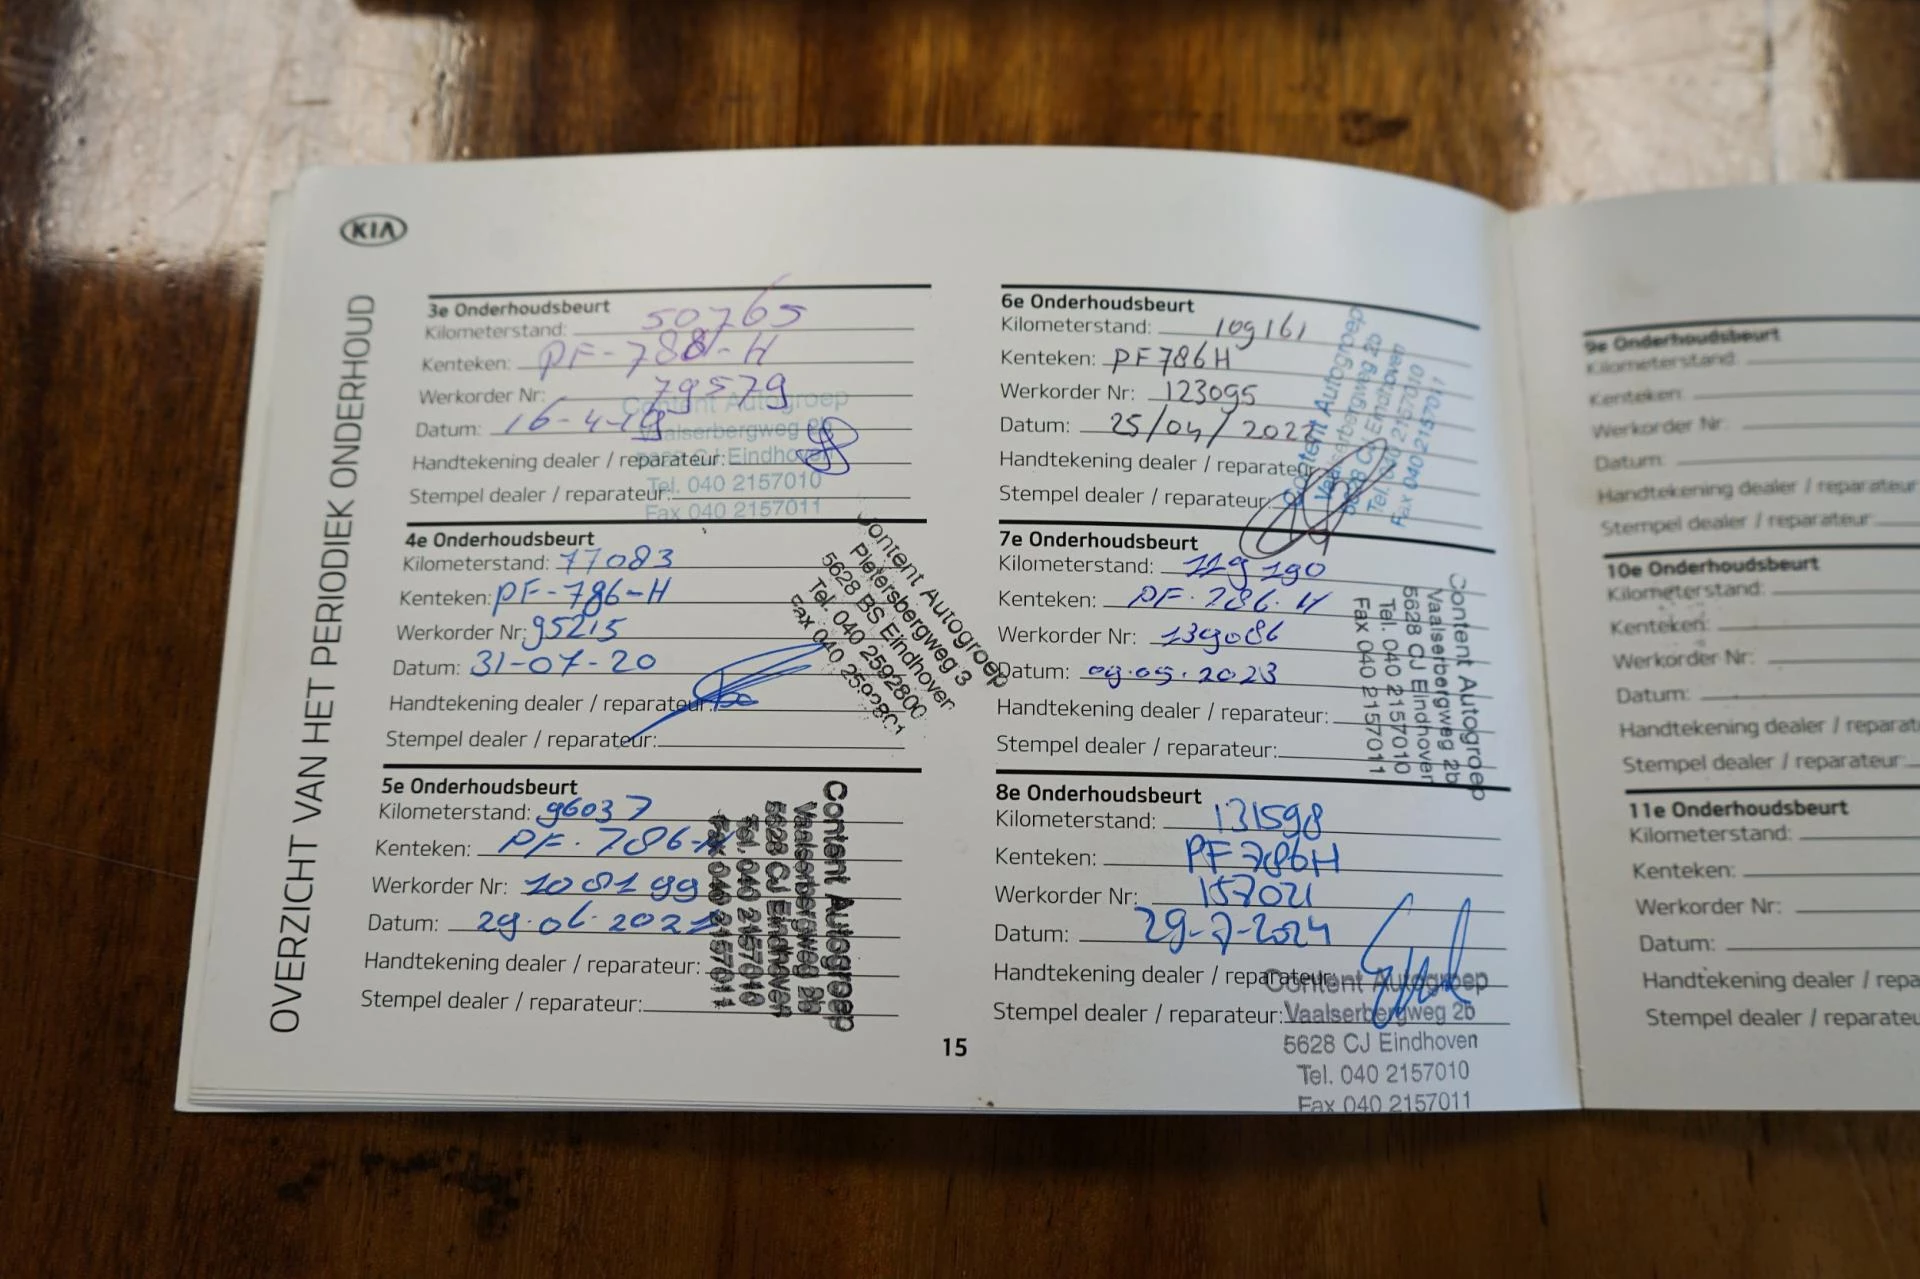 KIA
OVERZICHT VAN HET PERIODIEK ONDERHOUD
3e Onderhoudsbeurt
Kilometerstand: 50765
Kenteken: PF-788-H
Werkorder Nr: 79579
Datum: 16-4-19
Handtekening dealer / reparateur:
Stempel dealer / reparateur:
Content Autogroep
Vaalserbergweg 2b
5628 CJ Eindhoven
Tel. 040 2157010
Fax 040 2157011
4e Onderhoudsbeurt
Kilometerstand: 77083
Kenteken: PF-786-H
Werkorder Nr: 95215
Datum: 31-07-20
Handtekening dealer / reparateur:
Stempel dealer / reparateur:
Content Autogroep
Pietersbergweg 3
5628 BS Eindhoven
Tel. 040 2592800
Fax 040 2592801
5e Onderhoudsbeurt
Kilometerstand: 96037
Kenteken: PF.786-H
Werkorder Nr: 108199
Datum: 29.06.2021
Handtekening dealer / reparateur:
Stempel dealer / reparateur:
Content Autogroep
Vaalserbergweg 2b
5628 CJ Eindhoven
Tel. 040 2157010
Fax 040 2157011
6e Onderhoudsbeurt
Kilometerstand: 109161
Kenteken: PF786H
Werkorder Nr: 123095
Datum: 25/04/2022
Handtekening dealer / reparateur:
Stempel dealer / reparateur:
Content Autogroep
Vaalserbergweg 2b
5628 CJ Eindhoven
Tel. 040 2157010
Fax 040 2157011
7e Onderhoudsbeurt
Kilometerstand: 119190
Kenteken: PF.786.H
Werkorder Nr: 139086
Datum: 09.05.2023
Handtekening dealer / reparateur:
Stempel dealer / reparateur:
Content Autogroep
Vaalserbergweg 2b
5628 CJ Eindhoven
Tel. 040 2157010
Fax 040 2157011
8e Onderhoudsbeurt
Kilometerstand: 131598
Kenteken: PF786H
Werkorder Nr: 157021
Datum: 29-7-2024
Handtekening dealer / reparateur:
Stempel dealer / reparateur:
Content Autogroep
Vaalserbergweg 2b
5628 CJ Eindhoven
Tel. 040 2157010
Fax 040 2157011
15
9e Onderhoudsbeurt
Kilometerstand:
Kenteken:
Werkorder Nr:
Datum:
Handtekening dealer / reparateur
Stempel dealer / reparateur:
10e Onderhoudsbeurt
Kilometerstand:
Kenteken:
Werkorder Nr:
Datum:
Handtekening dealer / reparat
Stempel dealer / reparateur:
11e Onderhoudsbeurt
Kilometerstand:
Kenteken:
Werkorder Nr:
Datum:
Handtekening dealer / repa
Stempel dealer / reparateu